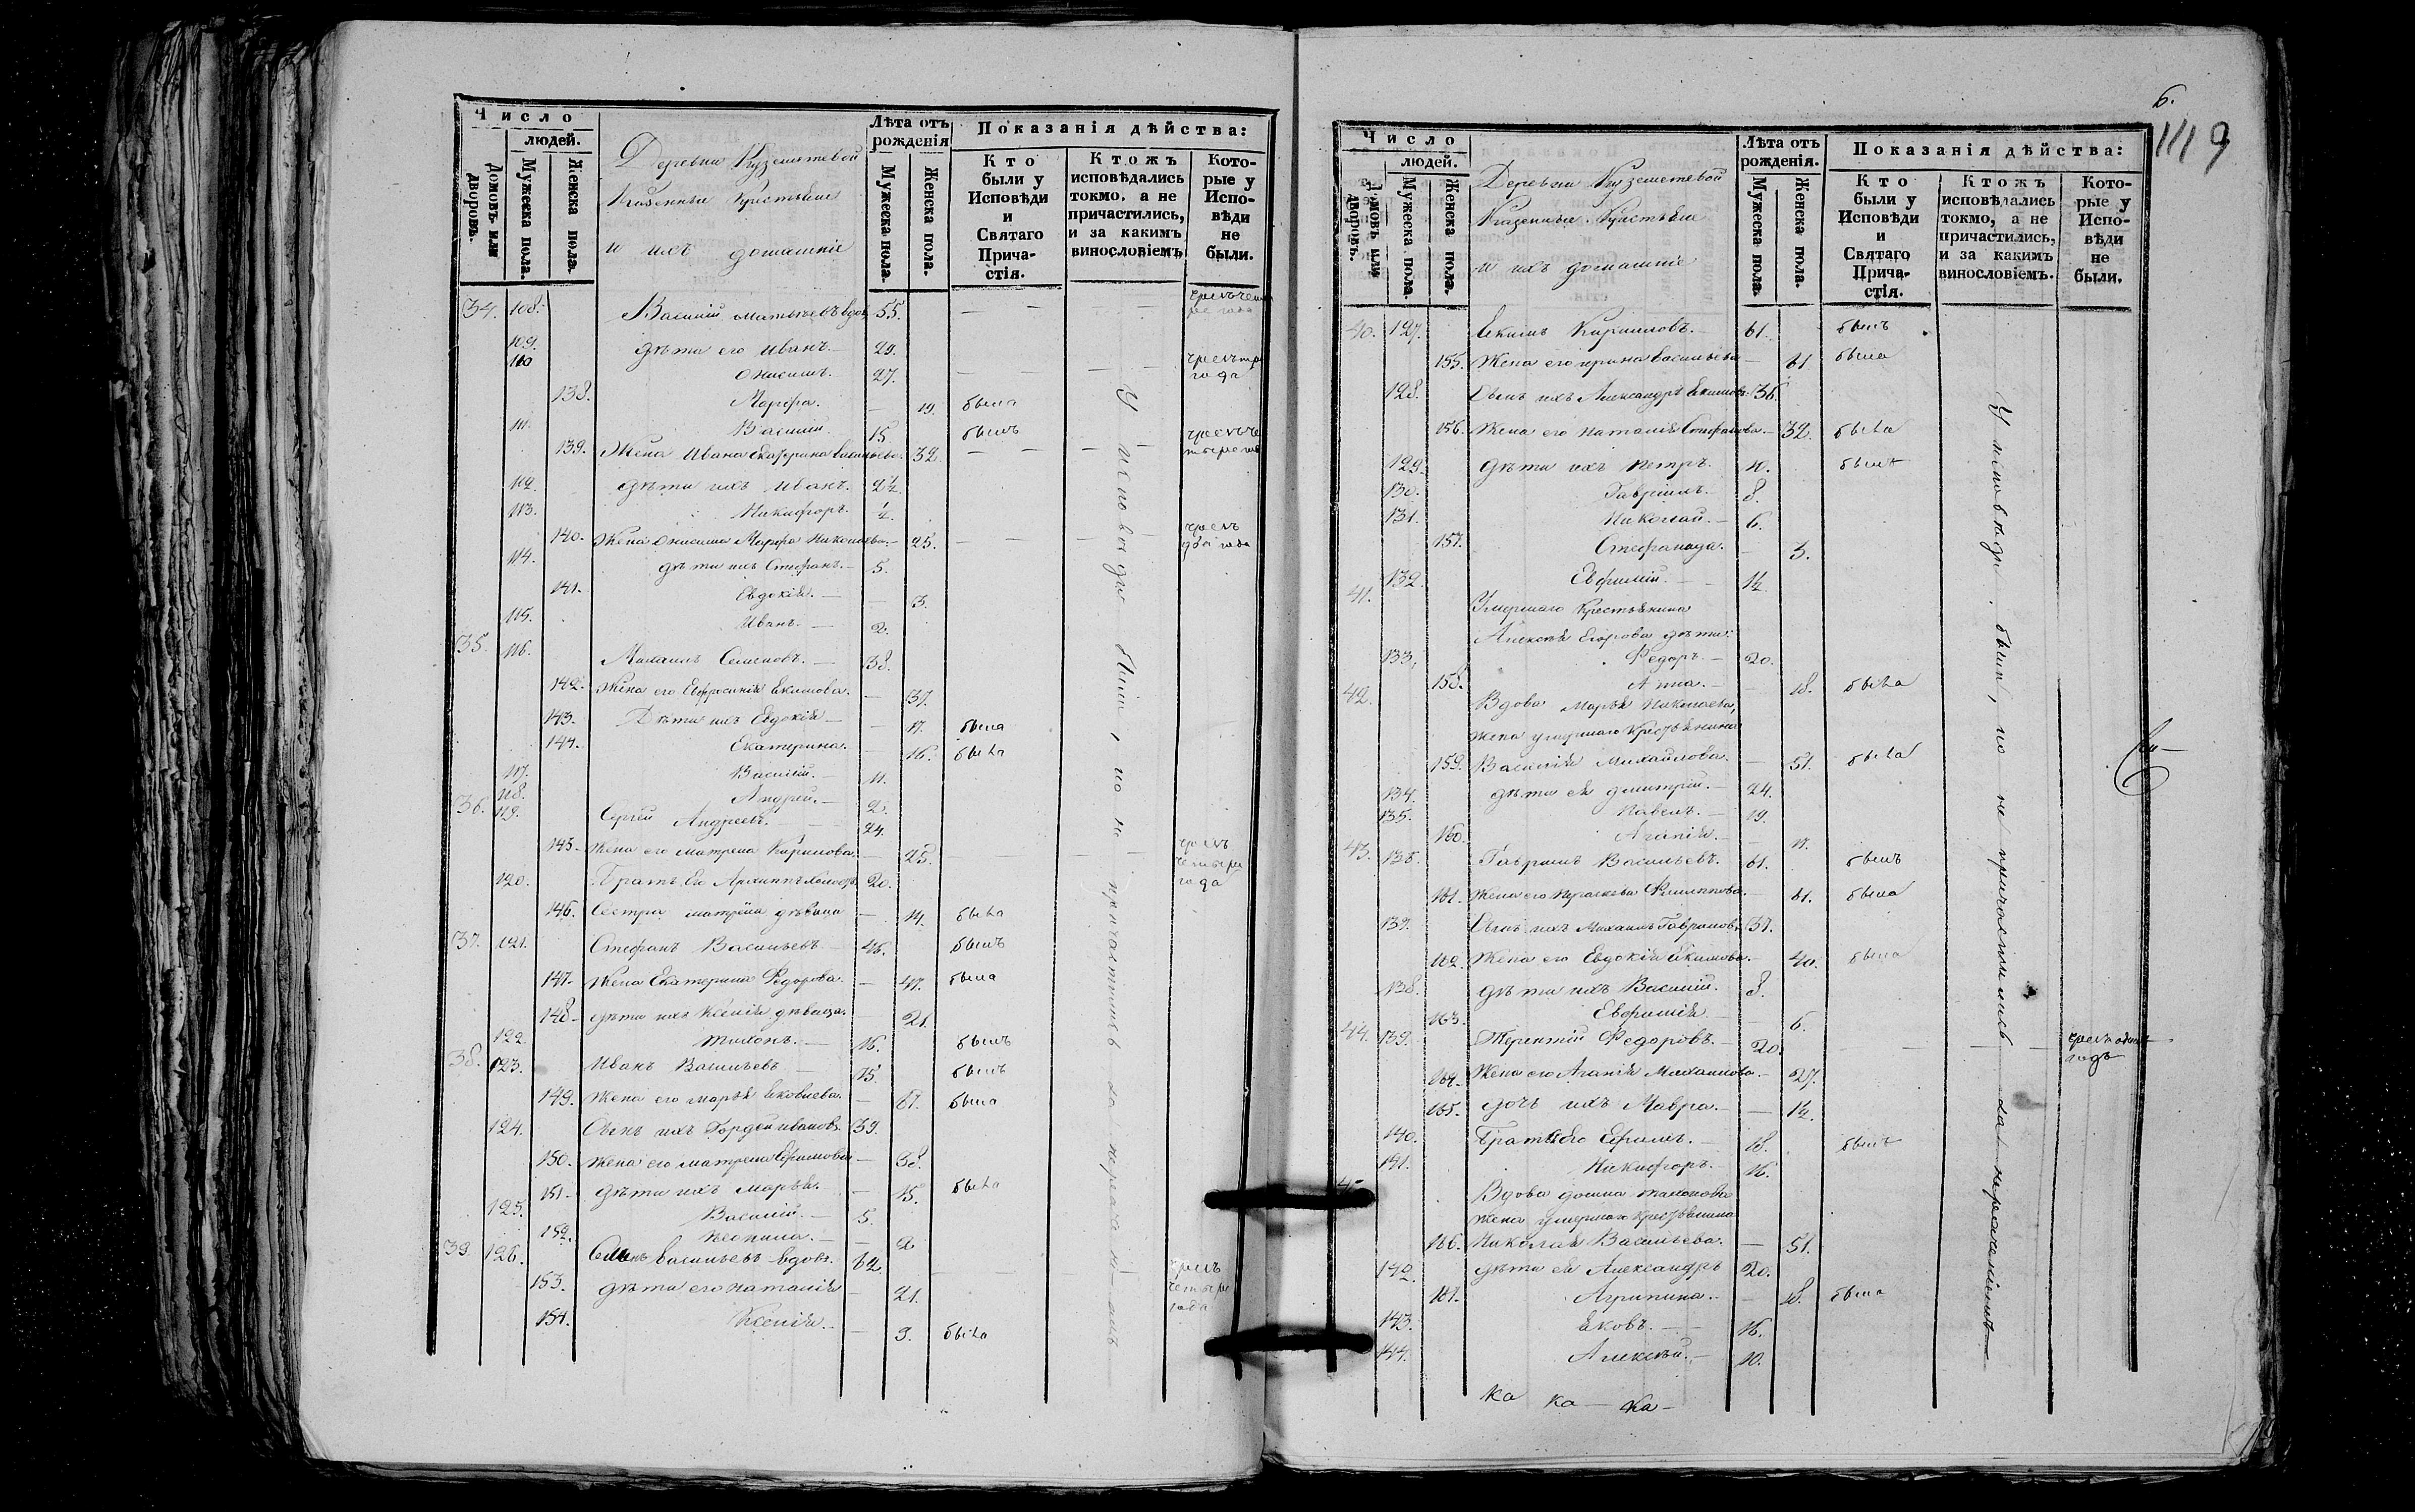 Число
людей.
Домовъ или дворовъ.
Мужеска пола.
Женска пола.
Деревни
Казенныя Крестьяне
и ихъ домашніе
Лѣта отъ рожденія
Мужеска пола.
Женска пола.
Показанія дѣйства:
Кто были у Исповѣди и Святаго Причастія.
Ктожъ исповѣдались токмо, а не причастились, и за какимъ винословіемъ
Которые у Исповѣди не были.
34. 108. Василій Матвѣевъ вдов. 55. — —
109. дѣти его Иванъ. — 29.
110 Онисимъ. 27. — — чрезъ три года
138. Марфа. — 19. была
111. Василій. 15 былъ
139. Жена Ивана Екатерина Васильева. 32. — — —
112. дѣти ихъ Иванъ. 2½
113. Никифоръ. ½
140. Жена Онисима Марфа Николаева. — 25. — — чрезъ два года
114. дѣти ихъ Стефанъ. — 5.
141. Евдокія. — — 3.
115. Иванъ. — 2.
35. 116. Михаилъ Семеновъ. — 38.
142. Жена его Евфросинія Екимова. — 37.
143. Дѣти ихъ Евдокія — — 17. была
144. Екатерина. — 16. была
117. Василій. — 11.
118. Андрей. — 2.
36. 119. Сергей Андреевъ. — 24.
145. Жена его Матрена Кирилова. — 25. — — — чрезъ четыре года
120. Братъ Его Архиппъ холостъ. 20.
146. Сестра Матрена дѣвица — 14. была
37. 121. Стефанъ Васильевъ. — 46. былъ
147. Жена Екатерина Федорова. — 47. была
148. дѣти ихъ Ксенія дѣвица. — 21.
122. Тихонъ. — 16. былъ
38. 123. Иванъ Васильевъ — былъ
149. Жена его Марья Яковлева. — 67. была
124. Сынъ ихъ Гордей Ивановъ. 39.
150. Жена его Матрена Ефимова — 38.
151. дѣти ихъ Марья. — — 15. была
125. Василій. — 5.
152. — 2
39 126. Васильевъ вдовъ. 62. — —
153. дѣти его Наталія — 21. чрезъ четыре года
154. Ксенія. — 9. была
У исповѣди были, но не причастились
6.
119
Число
людей.
Домовъ или дворовъ.
Мужеска пола.
Женска пола.
Деревни
Казенныя Крестьяне
и ихъ домашніе
Лѣта отъ рожденія.
Мужеска пола.
Женска пола.
Показанія дѣйства:
Кто были у Исповѣди и Святаго Причастія.
Ктожъ исповѣдались токмо, а не причастились, и за какимъ винословіемъ.
Которые у Исповѣди не были.
40. 127. Екимъ Кириловъ. — 61. былъ
155. Жена его Ирина Васильева — 61. была
128. Сынъ ихъ Александръ Екимовъ. 36.
156. Жена его Наталія Стефанова. — 32. была
129. дѣти ихъ Петръ. 10. былъ
130. Гавріилъ. — 8.
131. Николай. — 6.
157. Стефанида. — 3.
132. Евфимій. — 1½
41. Умершаго Крестьянина
Алексѣя Егорова дѣти:
133. Федоръ. — 20.
158. Анна. — — 18. была
42. Вдова Марья Николаева,
жена умершаго Крестьянина
159. Василія Михайлова. — 51. была
134. дѣти ея Димитрій. — 24.
135. Павелъ. — 19.
160. Агапія. — — 17.
43. 136. Гавріилъ Васильевъ. 61. былъ
161. Жена его Параскева Филиппова. — 61. была
137. Сынъ ихъ Михаилъ Гавриловъ. 37.
162. Жена его Евдокія Екимова. — 40. была
138. дѣти ихъ Василій. 8.
163. Евфимія. — — 6.
44. 139. Терентій Федоровъ. — 20. — — — чрезъ одинъ годъ
164. Жена его Агапія Михайлова. — 27.
165. дочь ихъ Мавра. — — 1½
140. Братья Его Ефимъ. — 18. былъ
141. Никифоръ. — 16.
Вдова
жена умершаго Крестьянина
166. Николая Васильева. — 51.
142. дѣти ея Александръ 20.
167. Агрипина. — — 18. была
143. Яковъ. — 16.
144. Алексѣй. — 10.
У исповѣди были, но не причастились за нерачѣніемъ
ка ка — ка —